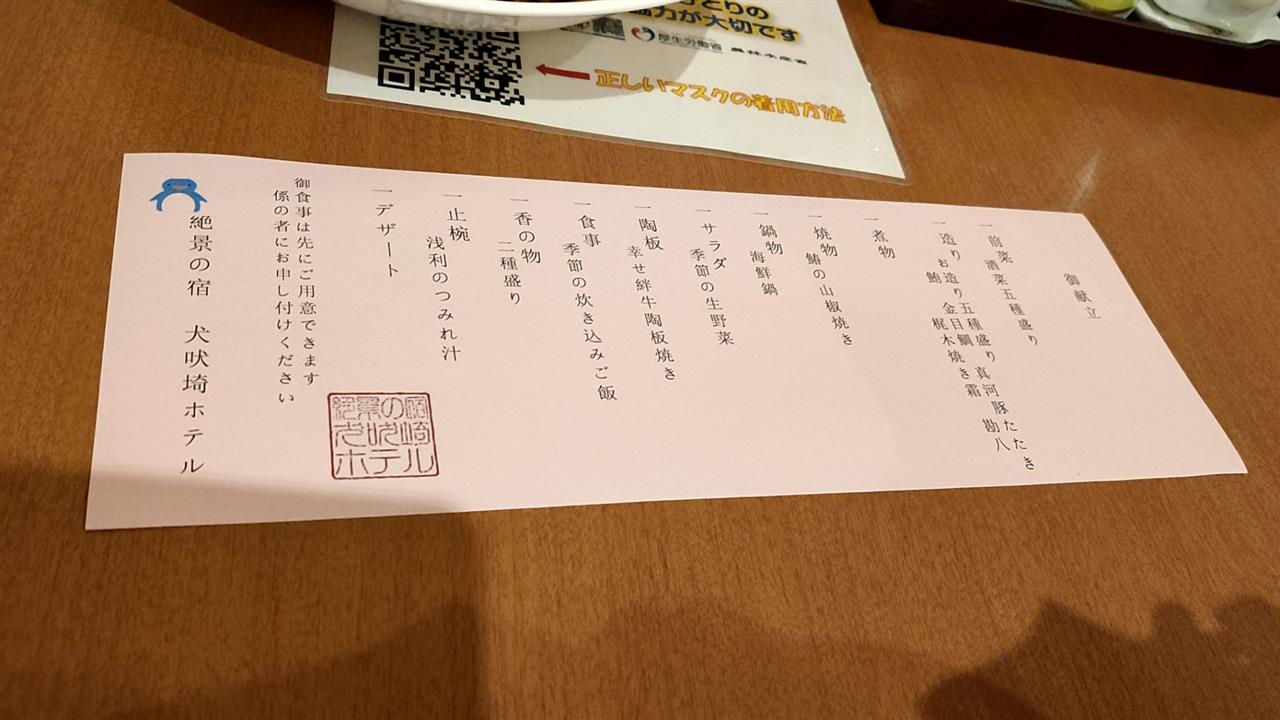 が大切です
厚生労働省 農林水産省
正しいマスクの着用方法
御献立
一 前菜
酒菜五種盛り
一 造り
お造り五種盛り 真河豚たたき
鮪 金目鯛焼き霜 勘八
梶木
一 煮物
一 焼物
鰆の山椒焼き
一 鍋物
海鮮鍋
一 サラダ
季節の生野菜
一 陶板
幸せ絆牛陶板焼き
一 食事
季節の炊き込みご飯
一 香の物
二種盛り
一 止椀
浅利のつみれ汁
一 デザート
御食事は先にご用意できます
係の者にお申し付けください
絶景の宿 犬吠埼ホテル
絶景の宿
犬吠埼
ホテル